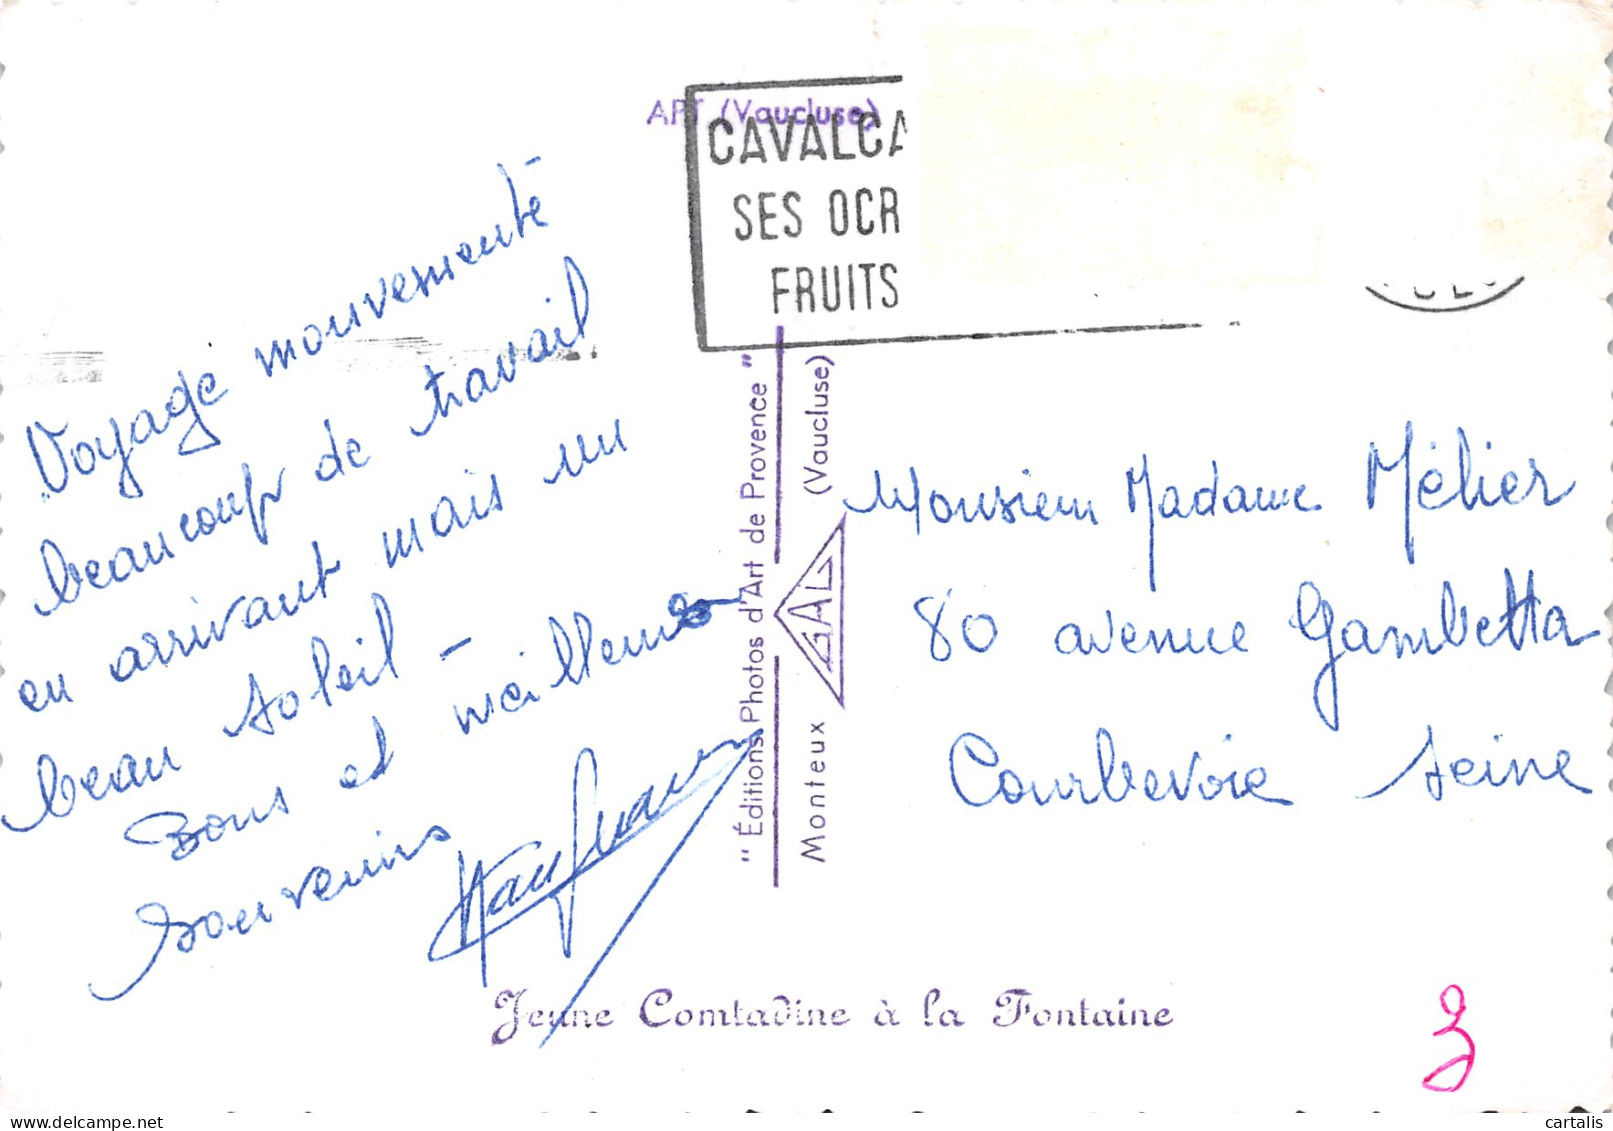 APT (Vaucluse)
CAVALCA
SES OCR
FRUITS
Voyage mouvementé
beaucoup de travail
en arrivant mais un
beau soleil -
Bons et meilleurs
souvenirs
"Éditions Photos d'Art de Provence"
Monteux GAL (Vaucluse)
Monsieur Madame Mélier
80 avenue Gambetta
Courbevoie Seine
Jeune Comtadine à la Fontaine
3
cartalis